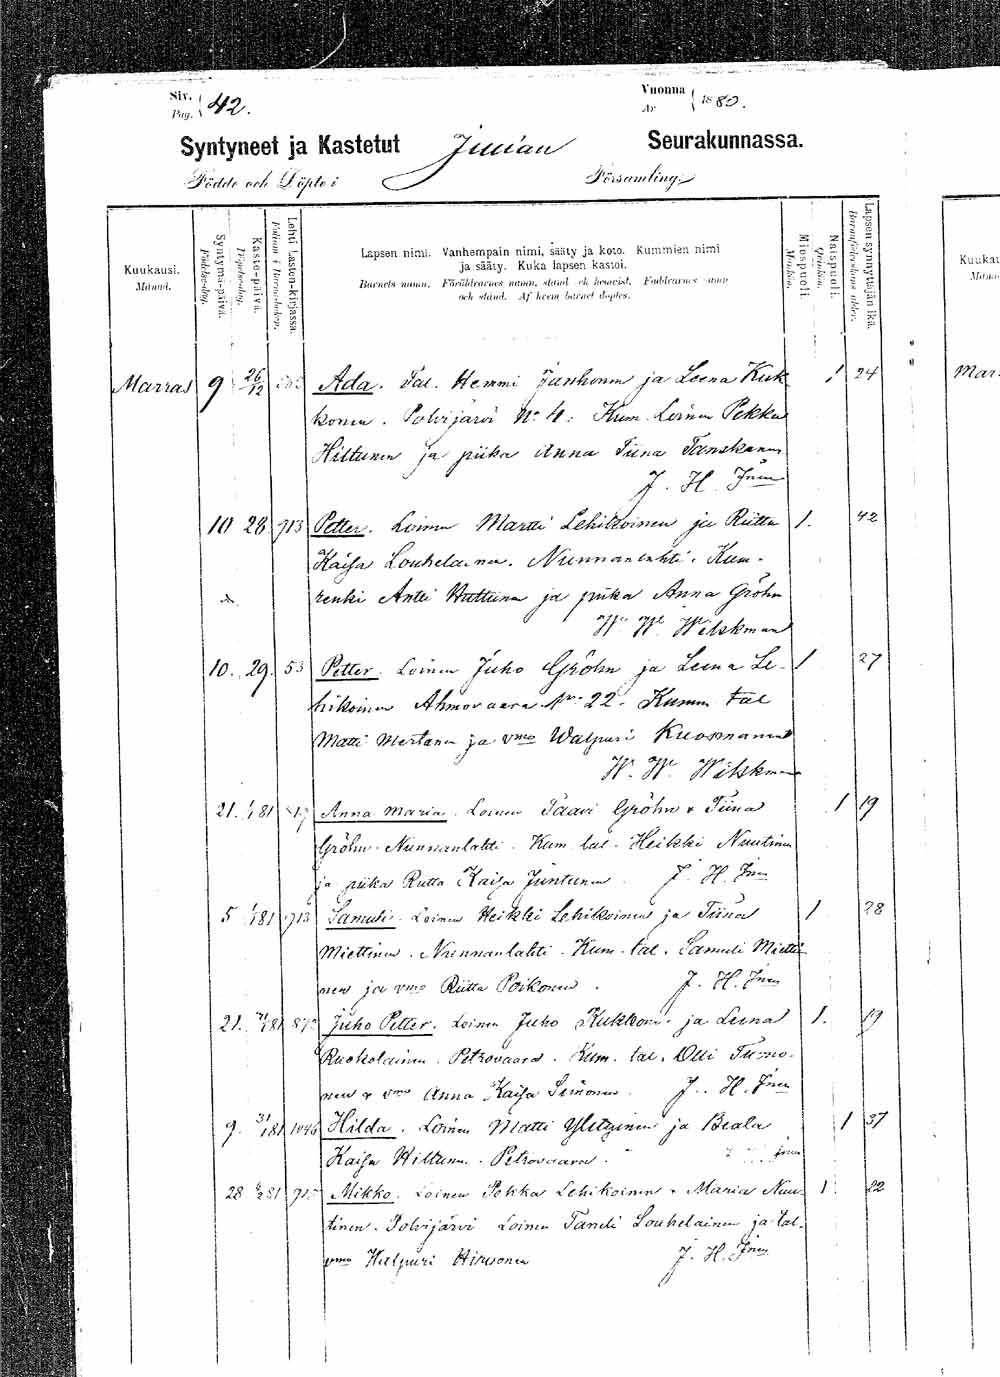 Siv. 42. Vuonna 1880.
Pag. Ar
Syntyneet ja Kastetut Juuan Seurakunnassa.
Födde och Döpte i Församling.
Kuukausi.
Månad.
Syntymä-päivä.
Födelse-dag.
Kaste-päivä.
Döpelse-dag.
Lehti Lasten-kirjassa.
Folium i Barnaboken.
Lapsen nimi. Vanhempain nimi, sääty ja koto. Kummien nimi
ja sääty. Kuka lapsen kastoi.
Barnets namn. Föräldrarnes namn, stånd och hemvist. Faddrarnes namn
och stånd. Af hvem barnet döptes.
Miespuoli.
Mankön.
Naispuoli.
Qvinkön.
Lapsen synnyttäjän ikä.
Barnaföderskans ålder.
Kuukau
Månad
Marras 9 26/12 Ada. Tal. Hemmi Junhonen ja Leena Kuk- 1 24 Mar
konen. Polvijärvi No 4. Kum. Loinen Pekka
Hiltunen ja piika Anna Tiina Tanskanen
J. H. Jnen
10 28 913 Petter. Loinen Martti Lehikoinen ja Riitta 1. 42
Kaisa Louhelainen. Nunnanlahti. Kum.
renki Antti Huttunen ja piika Anna Gröhn
W. W. Wilskman
10. 29. 53 Petter. Loinen Juho Gröhn ja Leena Le- 1 27
hikoinen Ahmovaara No 22. Kumm tal
Matti Martanen ja vmo Walpuri Kuosmanen
W. W. Wilskman
21. 1/1 81 Anna Maria. Loinen Taavi Gröhn & Tiina 1 19
Gröhn Nunnanlahti. Kum tal. Heikki Nuutinen
ja piika Riitta Kaisa Juntunen. J. H. Jnen
5 1/1 81 913 Samuli. Loinen Heikki Lehikoinen ja Tiina 1 28
Miettinen. Nunnanlahti. Kum. tal. Samuli Mietti-
nen ja vmo Riitta Poikonen. J. H. Jnen
21. 81 Juho Petter. Loinen Juho Kukkonen ja Leena 1. 19
Ruokolainen. Petrovaara. Kum. tal. Olli Tuono-
nen & vmo Anna Kaisa Simonen. J. H. Jnen
9. 31/1 81 1046 Hilda. Loinen Matti ja Beata 1 37
Kaisa Hiltunen. Petrovaara. Jnen
28 6/2 81 Mikko. Loinen Pekka Lehikoinen & Maria Nuu- 1. 22
tinen. Polvijärvi Loinen Taneli Louhelainen ja tal.
vmo Walpuri Hirvonen J. H. Jnen